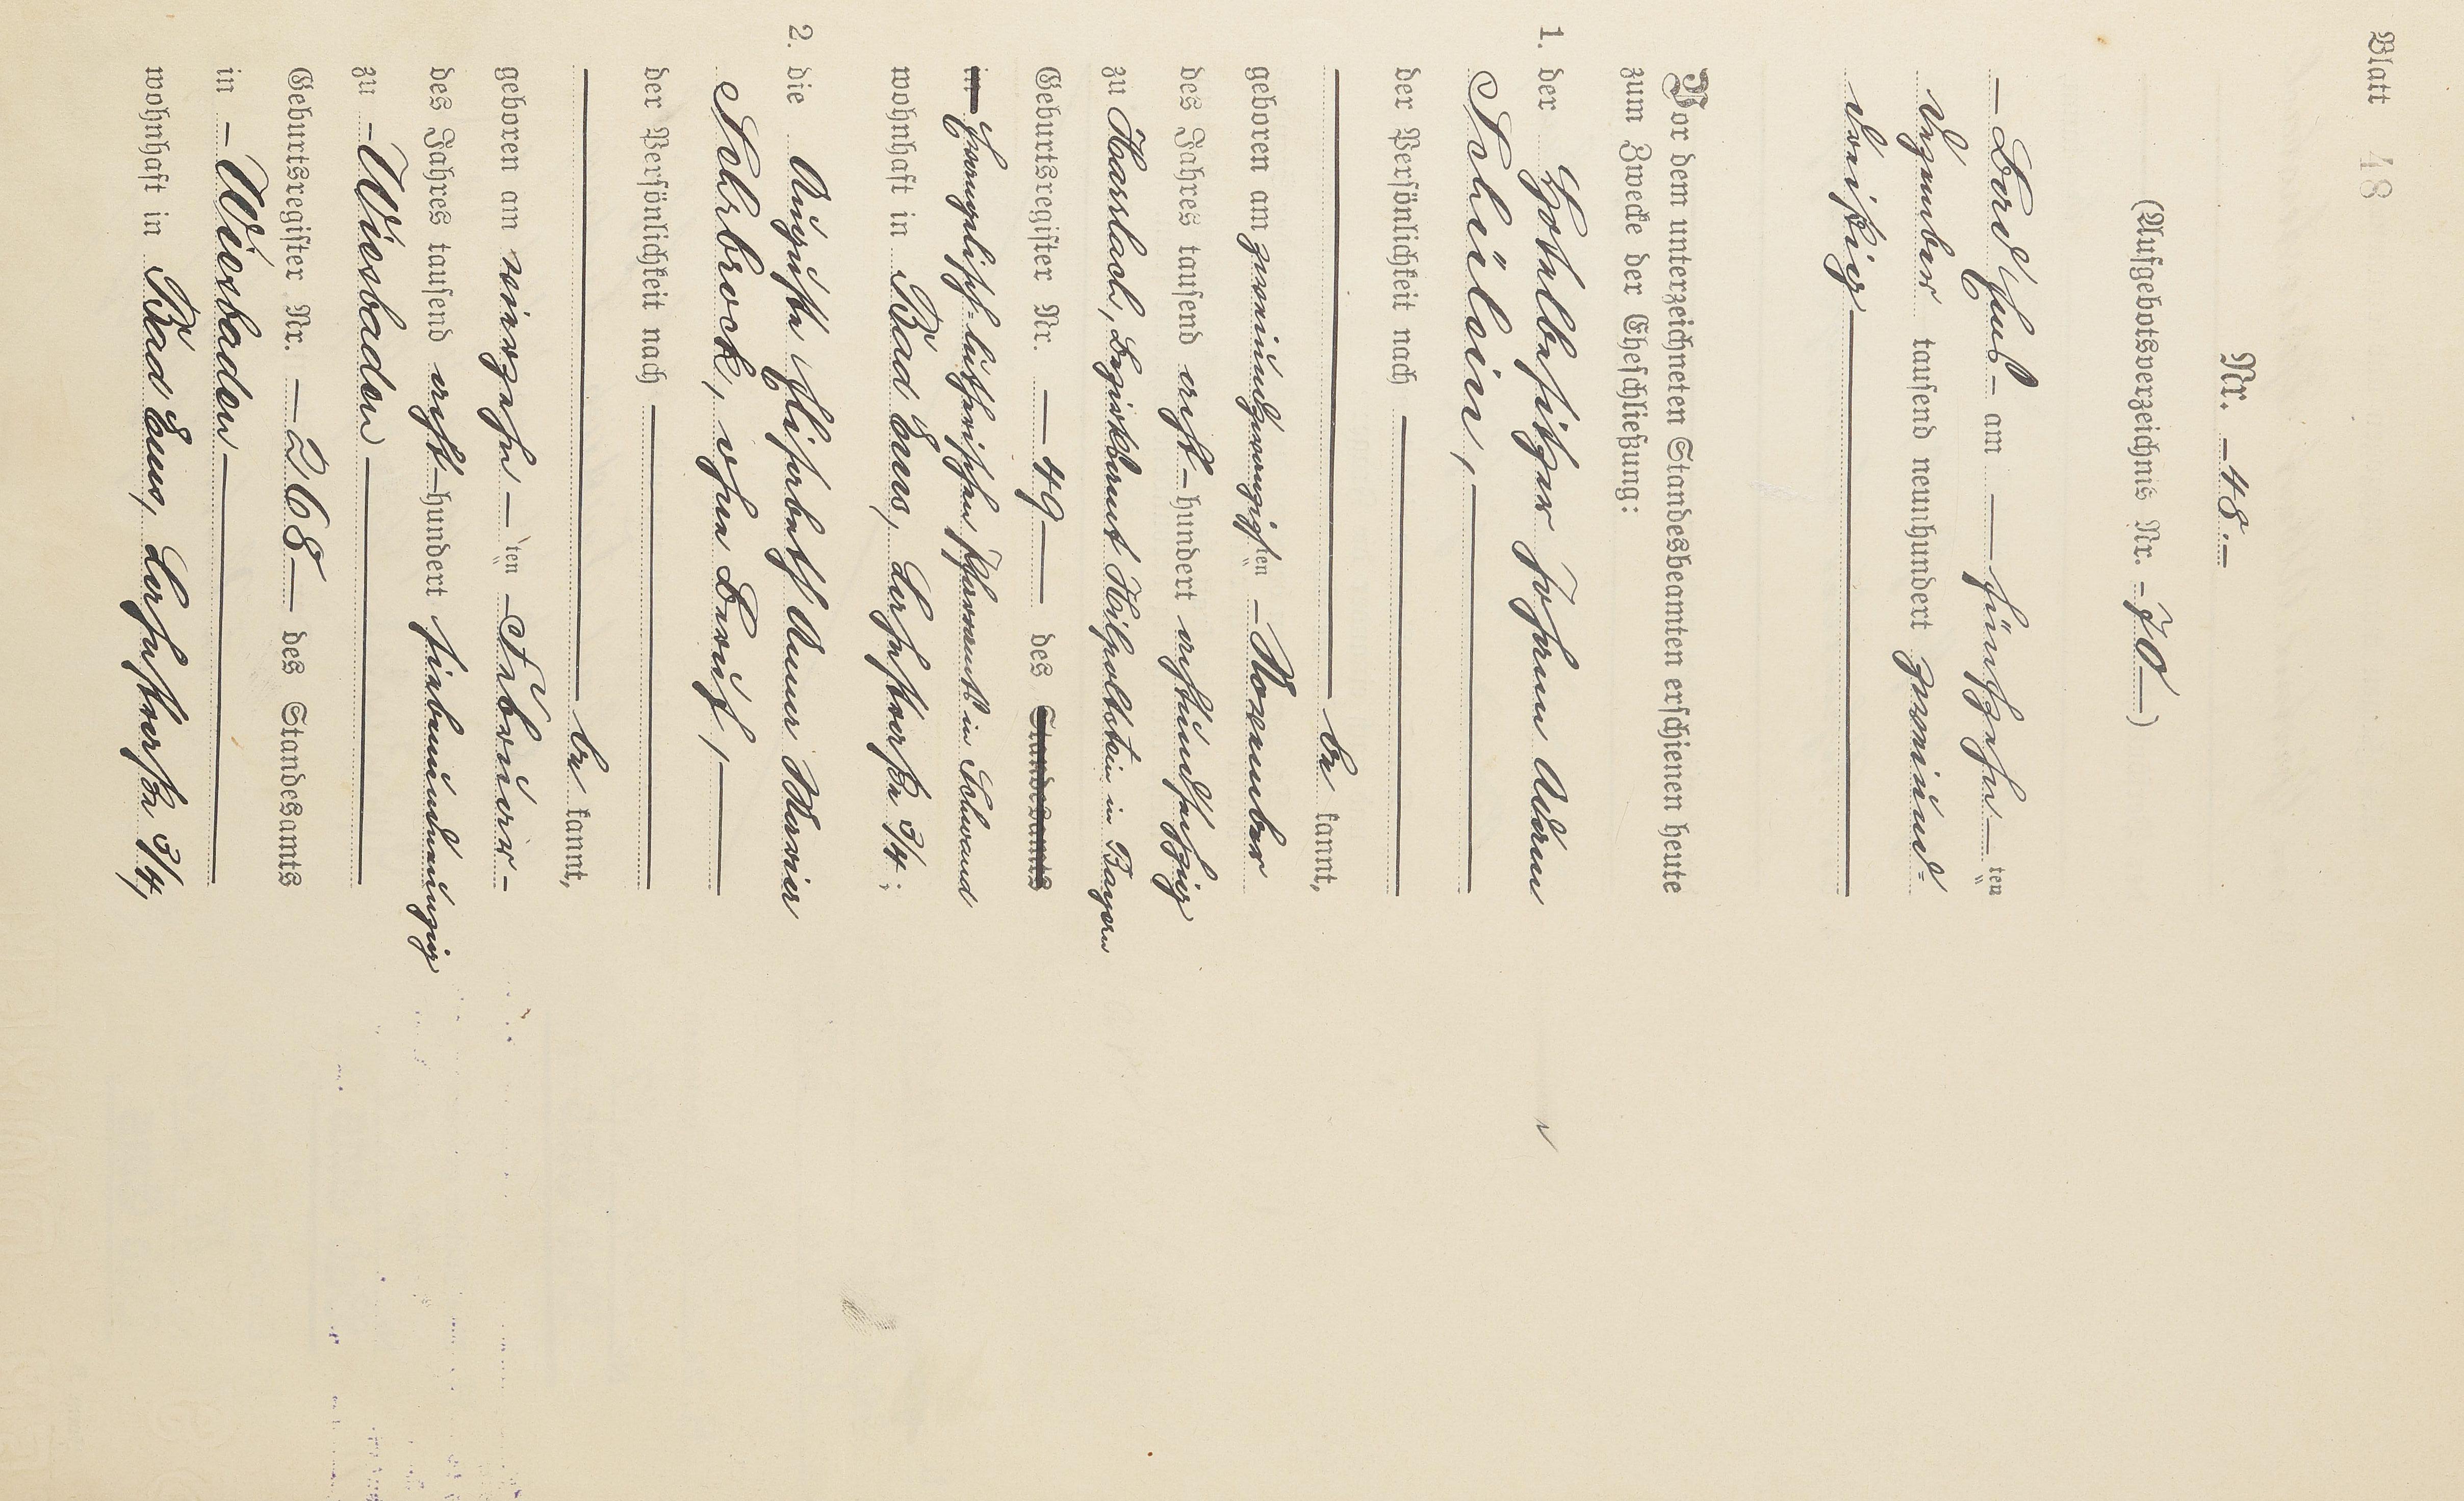 Blatt 48
Nr. – 48. –
(Aufgebotsverzeichnis Nr. – 70 –)
– Bad Ems – am – fünfzehn – ten
Dezember tausend neunhundert zweiund-
dreißig
Vor dem unterzeichneten Standesbeamten erschienen heute
zum Zwecke der Eheschließung:
1. der Hotelbesitzer Johann Adam
Schülein,
der Persönlichkeit nach
be kannt,
geboren am zweiundzwanzigsten – November
des Jahres tausend acht – hundert achtundsechzig
zu Haarslach, Bezirksamt Hilpoltstein in Bayern
Geburtsregister Nr. – 49 – des Standesamts
in Evangelisch-lutherischen Pfarramts in Schwand
wohnhaft in Bad Ems, Lahnstraße 3/4;
2. die Auguste Elisabeth Anna Maria
Schrbrock, ohne Beruf,
der Persönlichkeit nach
be kannt,
geboren am vierzehn – ten – Februar –
des Jahres tausend acht – hundert siebenundneunzig
zu – Wiesbaden –
Geburtsregister Nr. – 268 – des Standesamts
in – Wiesbaden –
wohnhaft in Bad Ems, Lahnstraße 3/4,